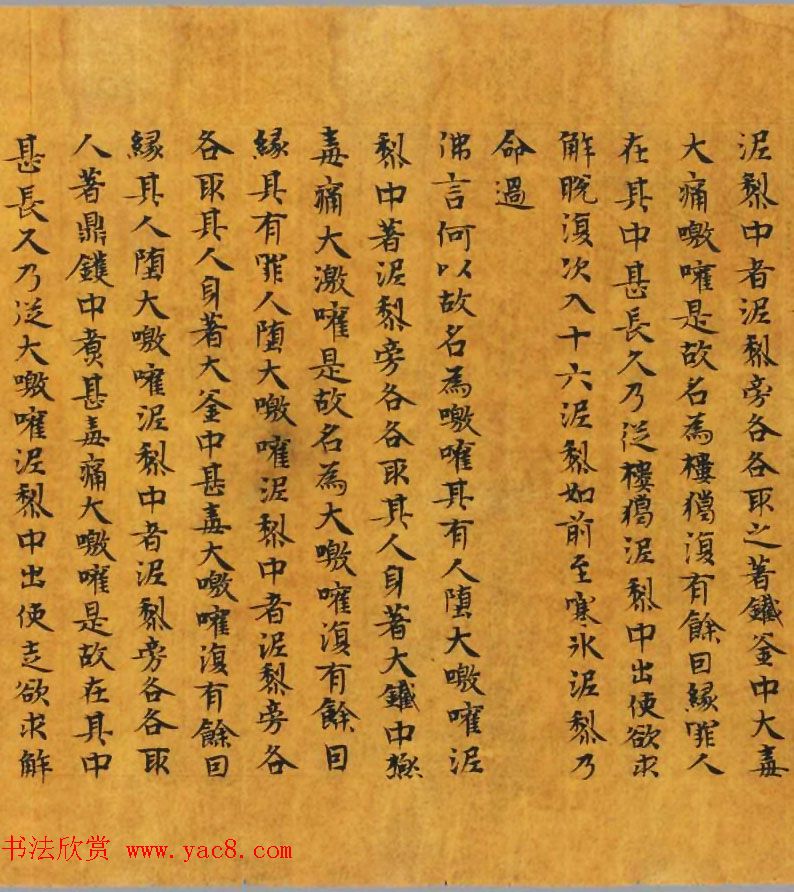 泥犁中者泥犁旁各各取之著鐵釜中大毒
大痛噭嚾是故名為樓獦復有餘因緣罪人
在其中甚長久乃從樓獦泥犁中出使欲求
解脫復次入十六泥犁如前至寒氷泥犁乃
命過
佛言何以故名為噭嚾其有人堕大噭嚾泥
犁中著泥犁旁各各取其人身著大鐵中嶽
毒痛大激嚾是故名為大噭嚾復有餘因
緣具有罪人堕大噭嚾泥犁中者泥犁旁各
各取其人身著大釜中甚毒大噭嚾復有餘因
緣其人堕大噭嚾泥犁中者泥犁旁各各取
人著鼎鑊中煮甚毒痛大噭嚾是故在其中
甚長久乃從大噭嚾泥犁中出使走欲求解
书法欣赏 www.yac8.com